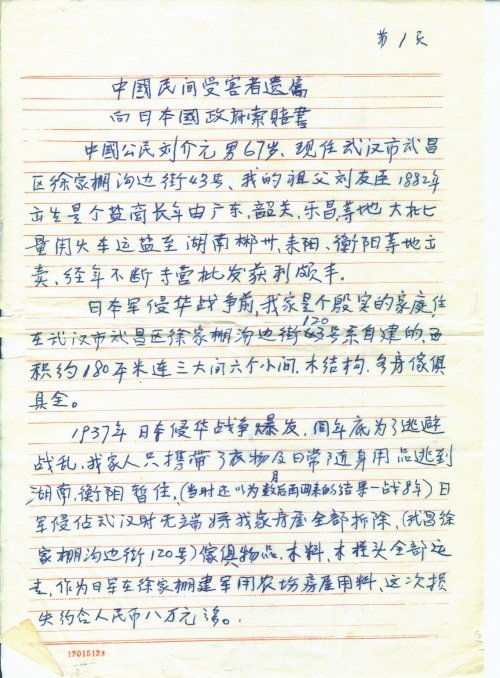 第1页
中國民间受害者遗属
向日本國政府索赔書
中國公民刘介元男67岁、现住武汉市武昌
区徐家棚沟边街43号、我的祖父刘友臣1882年
出生是个盐商长年由广东,韶关,乐昌,等地大批
量用火车运盐至湖南郴州,耒阳、衡阳等地出
卖,经年不断专营批发获利颇丰.
日本军侵华战争前,我家是个殷实的家庭,住
120
在武汉市武昌区徐家棚沟边街43号系自建的,面
积约180平米连三大间六个小间,木结构.各房傢俱
具全。
1937年日本侵华战争爆发,同年底为了逃避
战乱,我家人只携带了衣物及日常随身用品逃到
湖南,衡阳暂住,(当时还以为数月后再回来的结果一战8年)日
军侵佔武汉时无端将我家房屋全部拆除,(武昌徐
家棚沟边街120号)傢俱物品.木料、木样头全部运
走,作为日军在徐家棚建军用农场房屋用料、这次损
失约合人民币八万元多。
17015133